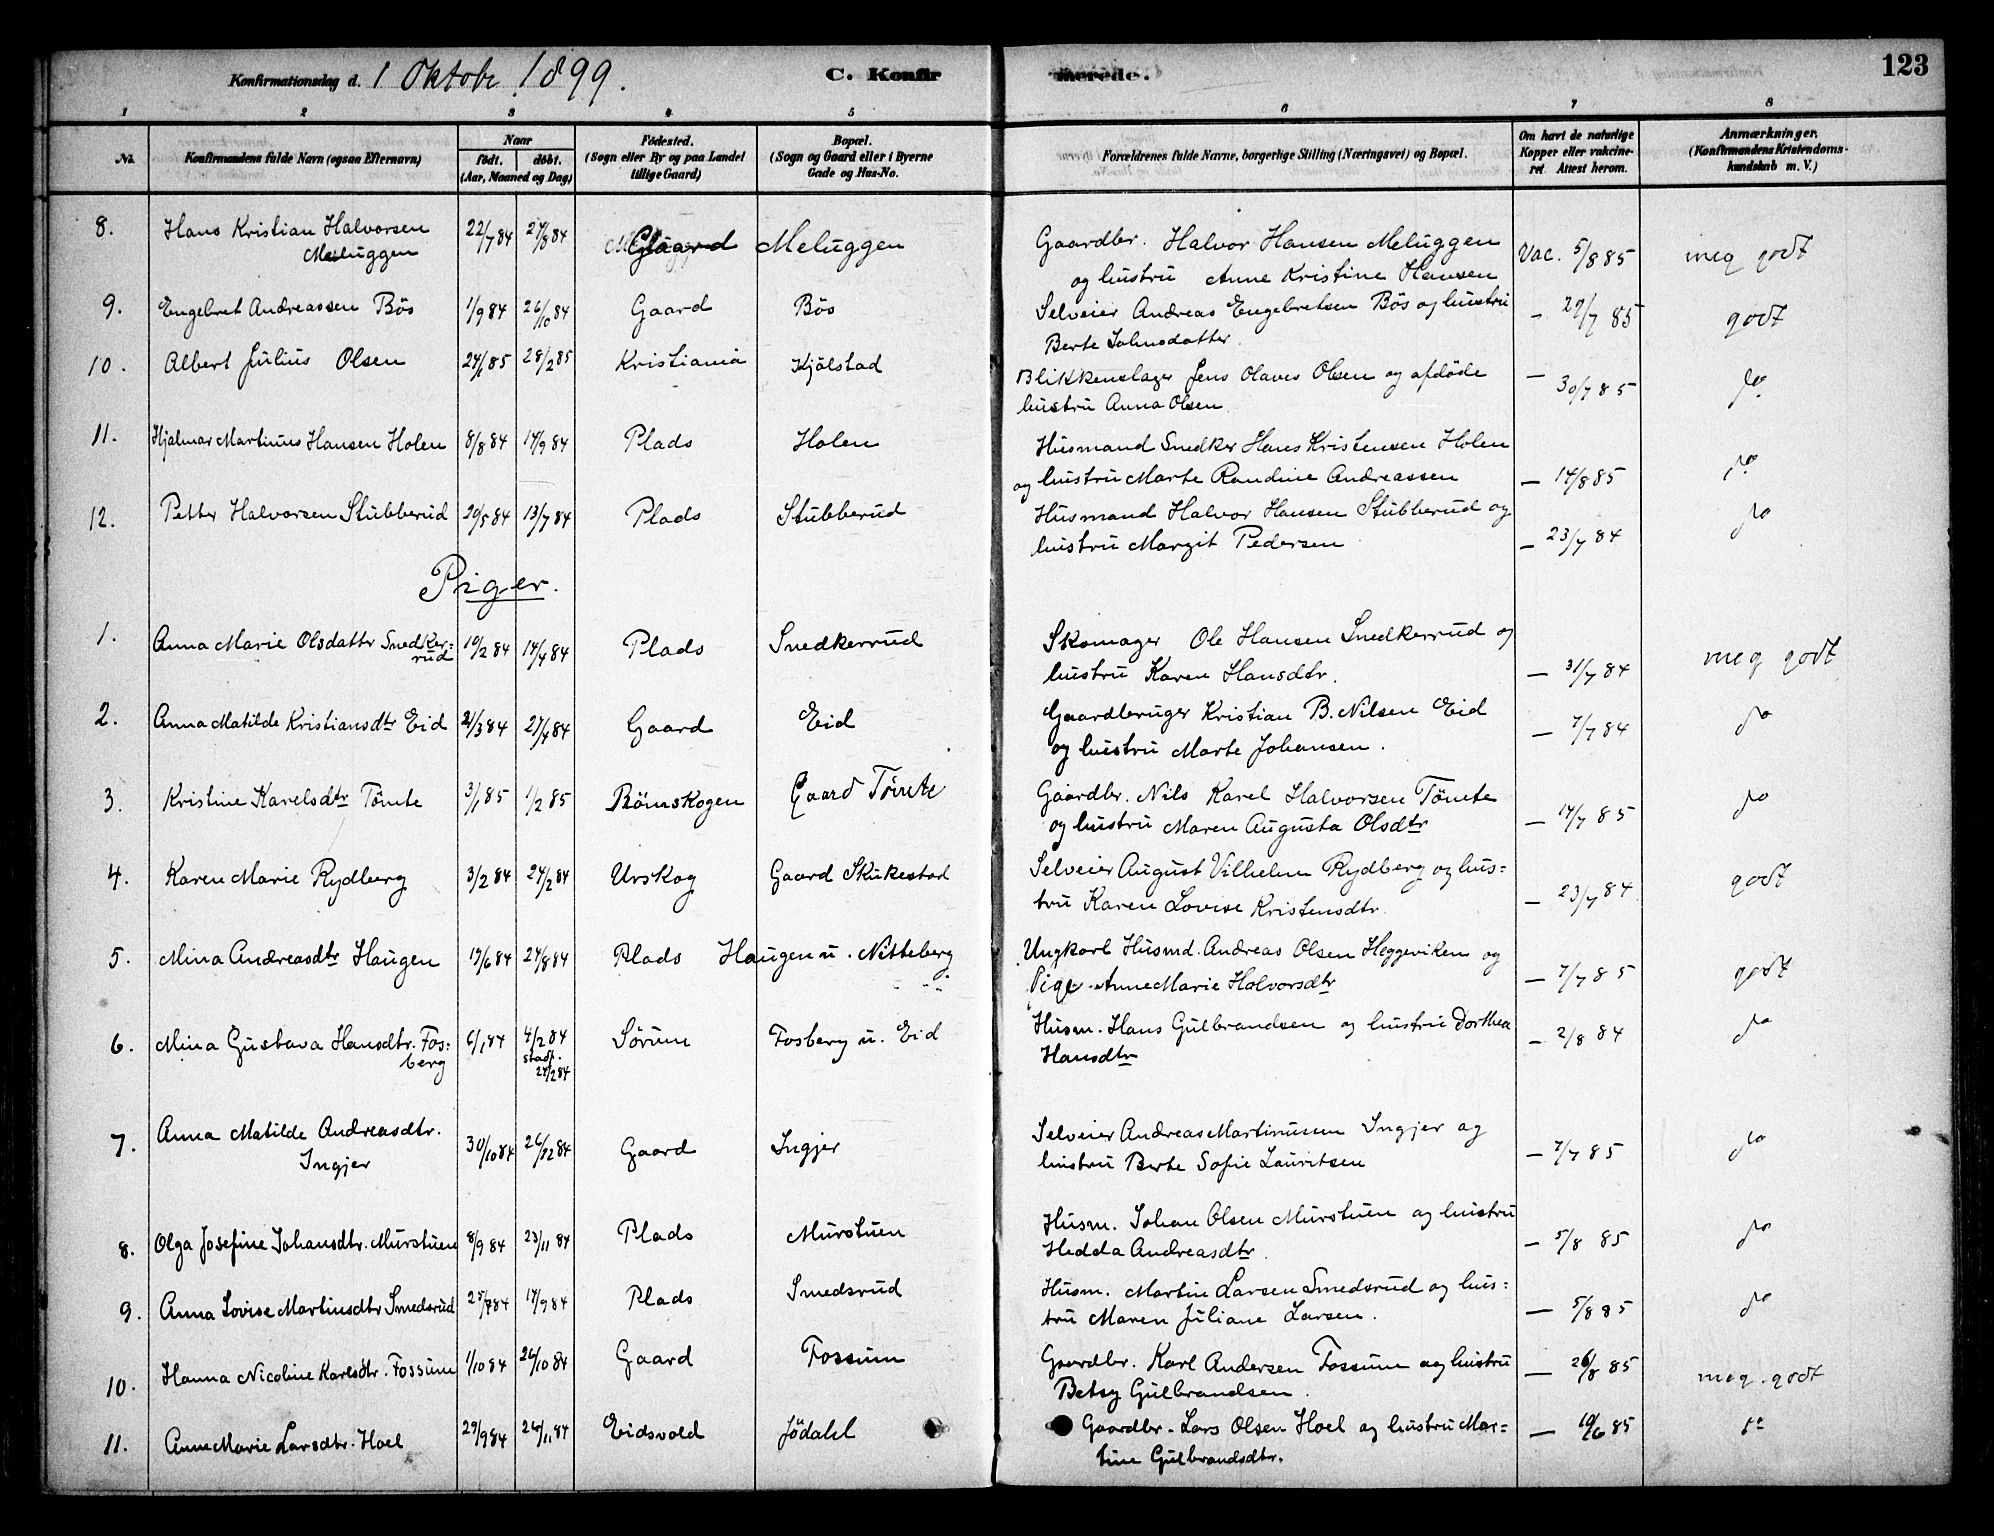 Konfirmationsdag d. 1 Oktobr 1899.
C. Konfirmerede.
123
1 2 3 4 5 6 7 8
No.
Konfirmandens fulde Navn (ogsaa Efternavn)
Naar
födt. döbt.
(Aar, Maaned og Dag)
Födested.
(Sogn eller By og paa Landet
tillige Gaard)
Bopæl.
(Sogn og Gaard eller i Byerne
Gade og Hus-No.
Forældrenes fulde Navne, borgerlige Stilling (Næringsvei) og Bopæl.
Om havt de naturlige
Kopper eller vakcine-
ret. Attest herom.
Anmærkninger.
(Konfirmandens Kristendoms-
kundskab m. V.)
8. Hans Kristian Halvorsen 22/7 84 24/8 84 Gaard Meluggen Gaardbr. Halvor Hansen Meluggen Vac. 5/8 85 meg godt
Meluggen og hustru Anne Kristine Hansen
9. Engebret Andreassen Bös 1/9 84 26/10 84 Gaard Bös Selveier Andreas Engebretsen Bös og hustru - 29/7 85 godt
Berte Johnsdatter.
10. Albert Julius Olsen 24/1 85 28/2 85 Kristiania Kjölstad Blikkenslager Jens Olaves Olsen og afdöde - 30/7 85 do
hustru Anna Olsen
11. Hjalmar Martinus Hansen Holen 8/8 84 14/9 84 Plads Holen Husmand Snedker Hans Kristensen Holen
og hustru Marte Randine Andreassen — 14/8 85 do
12. Petter Halvorsen Stubberud 20/5 84 13/7 84 Plads Stubberud Husmand Halvor Hansen Stubberud og
hustru Margit Pedersen — 23/7 84 do
Piger.
1. Anna Marie Olsdattr Snedker- 10/2 84 14/4 84 Plads Snedkerrud Skomager Ole Hansen Snedkerrud og
rud hustru Karen Hansdtr. — 31/7 84 meg godt
2. Anna Matilde Kristiansdtr Eid 21/3 84 27/4 84 Gaard Eid Gaardbruger Kristian B. Nilsen Eid
og hustru Marte Johansen. — 7/7 84 do
3. Kristine Karelsdtr Tömte 3/1 85 1/2 85 Römskogen Gaard Tömte Gaardbr. Nils Karel Halvorsen Tömte
og hustru Maren Augusta Olsdtr — 14/7 85 do
4. Karen Marie Rydberg 3/2 84 24/2 84 Urskog Gaard Skukestad Selveier August Vilhelm Rydberg og hus=
tru Karen Lovise Kristensdtr. — 23/7 84 godt
5. Mina Andreasdtr Haugen 19/6 84 24/8 84 Plads Haugen u. Nitteberg Ungkarl Husmd. Andreas Olsen Heggeviken og
Pige Anne Marie Halvorsdtr — 7/7 85 godt
6. Mina Gustava Hansdtr. Fos= 6/1 84 4/2 84 Sörum Fosberg u. Eid Husm. Hans Gulbrandsen og hustru Dorthea — 2/8 84 do
berg stadf. 24/2 84 Hansdtr
7. Anna Matilde Andreasdtr. 30/10 84 26/12 84 Gaard Ingjer Selveier Andreas Martinusen Ingjer og
Ingjer hustru Berte Sofie Lauritsen — 7/7 85 do
8. Olga Josefine Johansdtr. Murstuen 8/9 84 23/11 84 Plads Murstuen Husm. Johan Olsen Murstuen og hustru
Hedda Andreasdtr. — 5/8 85 do
9. Anna Lovise Martinsdtr Smedsrud 25/7 84 14/9 84 Plads Smedsrud Husm. Martin Larsen Smedsrud og hus=
tru Maren Juliane Larsen. — 5/8 85 do
10. Hanna Nicoline Karlsdtr. Fossum 1/10 84 26/10 84 Gaard Fossum Gaardbr. Karl Andersen Fossum og hustru — 26/8 85 meg. godt
Betsy Gulbrandsen.
11. Anne Marie Larsdtr. Hoel 29/9 84 24/11 84 Eidsvold Jödahl Gaardbr. Lars Olsen Hoel og hustru Mar= — 10/6 85 do
tine Gulbrandsdtr.